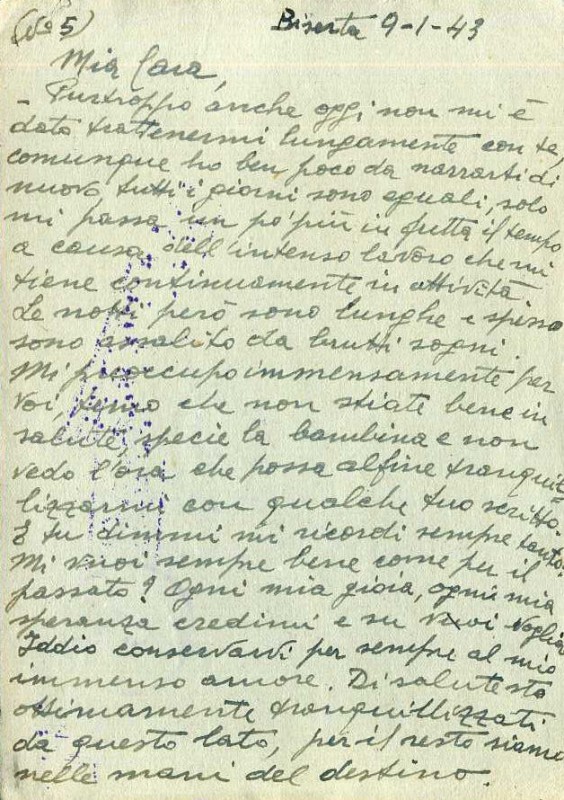 (No 5) Biserta 9-1-43
Mia Cara,
- Purtroppo anche oggi non mi è
dato trattenermi lungamente con te,
comunque ho ben poco da narrarti di
nuovo, tutti i giorni sono eguali, solo
mi passa un po' più in fretta il tempo
a causa dell'intenso lavoro che mi
tiene continuamente in attività.
Le notti però sono lunghe e spesso
sono assalito da brutti sogni.
Mi preoccupo immensamente per
voi, temo che non stiate bene in
salute, specie la bambina e non
vedo l'ora che possa alfine tranquil=
lizzarmi con qualche tuo scritto.
E tu dimmi mi ricordi sempre tanto?
Mi vuoi sempre bene come per il
passato? Ogni mia gioia, ogni mia
speranza credimi è su voi Voglia
Iddio conservarvi per sempre al mio
immenso amore. Di salute sto
ottimamente tranquillizzati
da questo lato, per il resto siamo
nelle mani del destino.